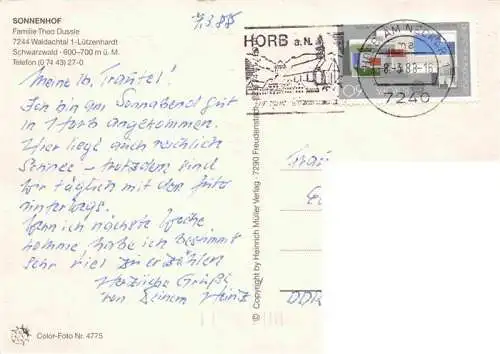 SONNENHOF
Familie Theo Dussle
7244 Waldachtal 1-Lützenhardt
Schwarzwald · 600-700 m ü. M.
Telefon (0 74 43) 27-0
7.3.88
Meine lb. Trautel!
Ich bin am Sonnabend gut
in Horb angekommen.
Hier liegt auch reichlich
Schnee - trotzdem sind
wir täglich mit dem Auto
unterwegs.
Wenn ich nächste Woche
komme, habe ich bestimmt
sehr viel zu erzählen
Herzliche Grüße
von Deinem Heinz
Color-Foto Nr. 4775
© Copyright by Heinrich Müller Verlag · 7290 Freudenstadt
HORB a.N.
HORB AM NECKAR
7240
DDR